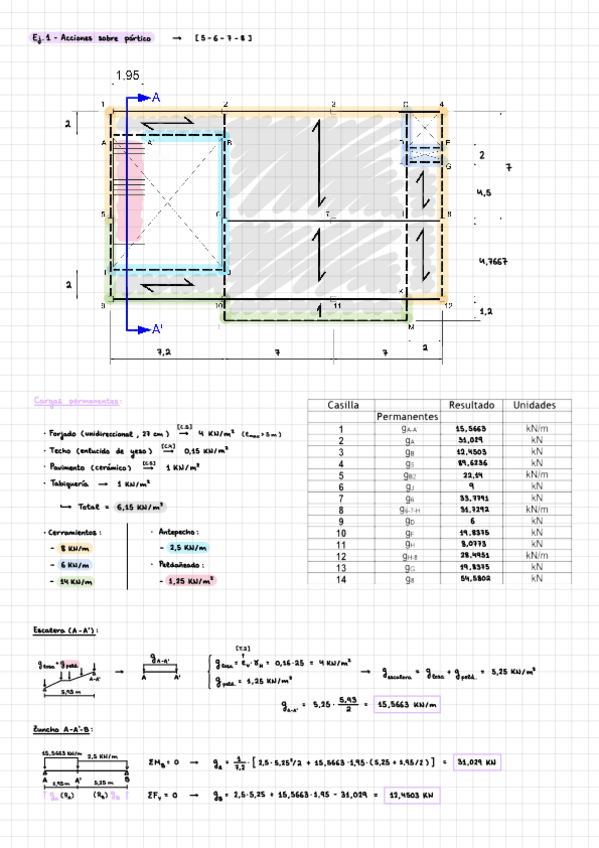 Ej.1 - Acciones sobre pórtico → [5-6-7-8]
1.95
A
1 2 3 C 4
2
A A' B D E
2
7
G
4,5
5 6 7 I 8
4,7667
I J
2
K
9 10 11 12
1,2
A' L M
2
7,2 7 7
Cargas permanentes:
· Forjado (unidireccional, 27 cm) [C.5]→ 4 KN/m² (Lmax > 5 m)
· Techo (enlucido de yeso) [C.4]→ 0,15 KN/m²
· Pavimento (cerámico) [C.5]→ 1 KN/m²
· Tabiquería → 1 KN/m²
↳ Total = 6,15 KN/m²
· Cerramientos:
- 8 KN/m
- 6 KN/m
- 14 KN/m
· Antepecho:
- 2,5 KN/m
· Peldañeado:
- 1,25 KN/m²
Casilla Resultado Unidades
Permanentes
1 gA-A 15,5663 kN/m
2 gA 31,029 kN
3 gB 12,4503 kN
4 g5 89,6236 kN
5 22,14 kN/m
6 gJ 9 kN
7 g6 33,7791 kN
8 g6-7-H 31,7292 kN/m
9 gD 6 kN
10 gF 19,8375 kN
11 gH 8,0773 kN
12 gH-8 28,4951 kN/m
13 gG 19,8375 kN
14 g8 54,5802 kN
Escalera (A-A'):
glosa + gpeld.
A A-A'
5,93 m
→
gA-A'
A A'
[T.2]
glosa = eV · γH = 0,16·25 = 4 KN/m²
gpeld. = 1,25 KN/m²
→ gescalera = glosa + gpeld. = 5,25 KN/m²
gA-A' = 5,25 · 5,93/2 = 15,5663 KN/m
Zuncho A-A'-B:
15,5663 KN/m 2,5 KN/m
A A' B
1,95 m 5,25 m
gA (RA) (RB) gB
ΣMB = 0 → gA = 1/7,2 · [2,5·5,25²/2 + 15,5663·1,95·(5,25 + 1,95/2)] = 31,029 KN
ΣFY = 0 → gB = 2,5·5,25 + 15,5663·1,95 - 31,029 = 12,4503 KN